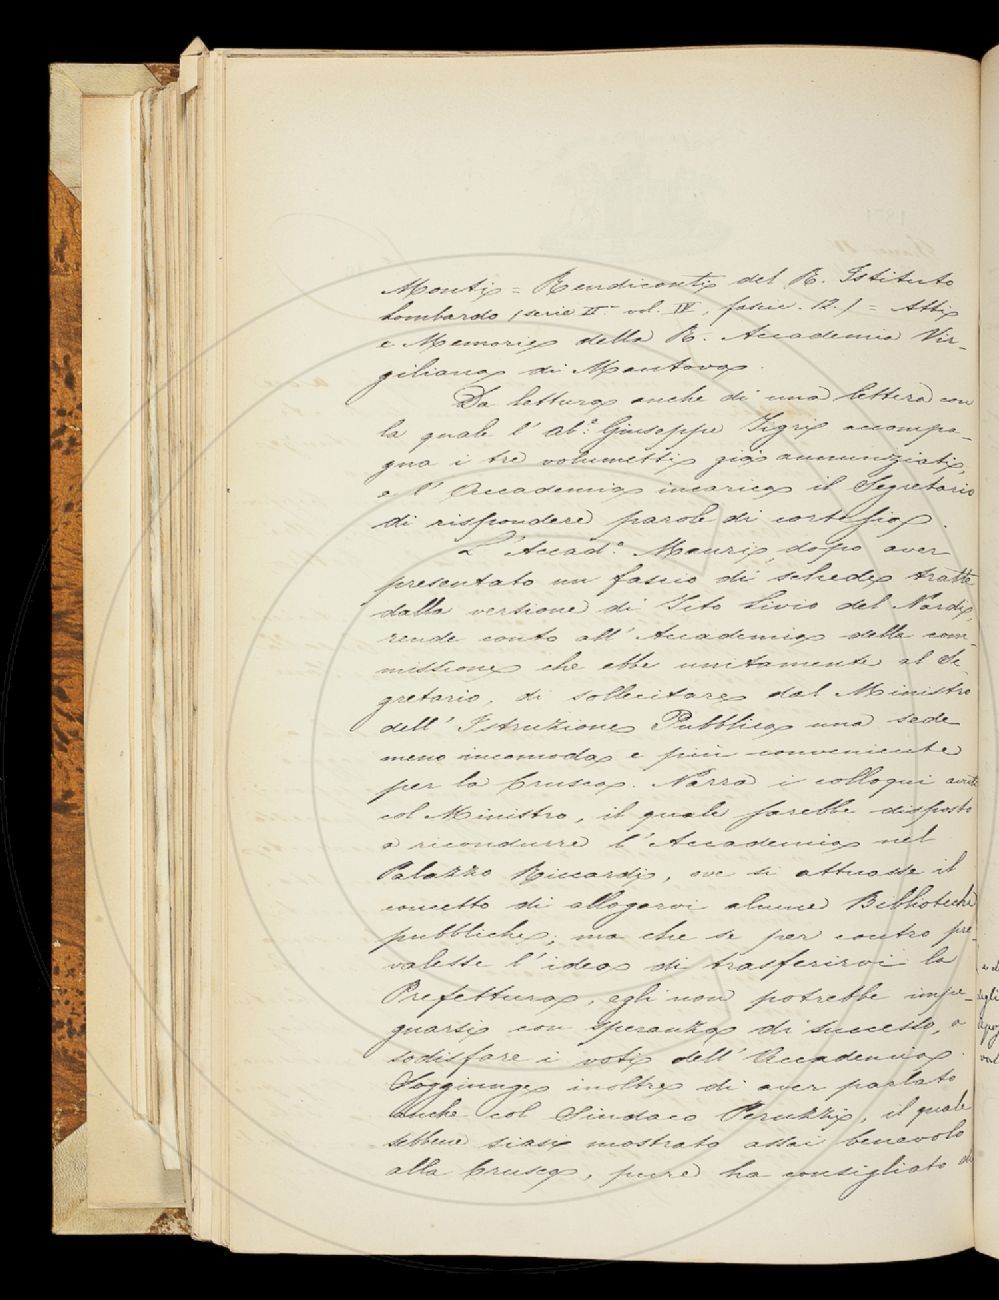 Monti = Rendiconti del R. Istituto
Lombardo (serie II. vol. IV, fascic. 12.) = Atti
e Memorie della R. Accademia Vir-
giliana di Mantova.
Dà lettura anche di una lettera con
la quale l'Ab.e Giuseppe Tigri accompa-
gna i tre volumetti già annunziati,
e l'Accademia incarica il Segretario
di rispondere parole di cortesia.
L'Accad.o Mauri, dopo aver
presentato un fascio di schede tratte
dalla versione di Tito Livio del Nardi,
rende conto all'Accademia della com-
missione che ebbe unitamente al Se
gretario, di sollecitare dal Ministro
dell'Istruzione Pubblica una sede
meno incomoda e più conveniente
per la Crusca. Narra i colloqui avuti
col Ministro, il quale sarebbe disposto
a ricondurre l'Accademia nel
Palazzo Riccardi, ove si attuasse il
concetto di allogarvi alcune Biblioteche
pubbliche; ma che se per contro pre-
valesse l'idea di trasferirvi la
Prefettura, egli non potrebbe impe-
gnarsi con speranza di successo, a
sodisfare i voti dell'Accademia.
Soggiunge inoltre di aver parlato
anche col Sindaco Peruzzi, il quale
sebbene siasi mostrato assai benevolo
alla Crusca, pure ha consigliato di